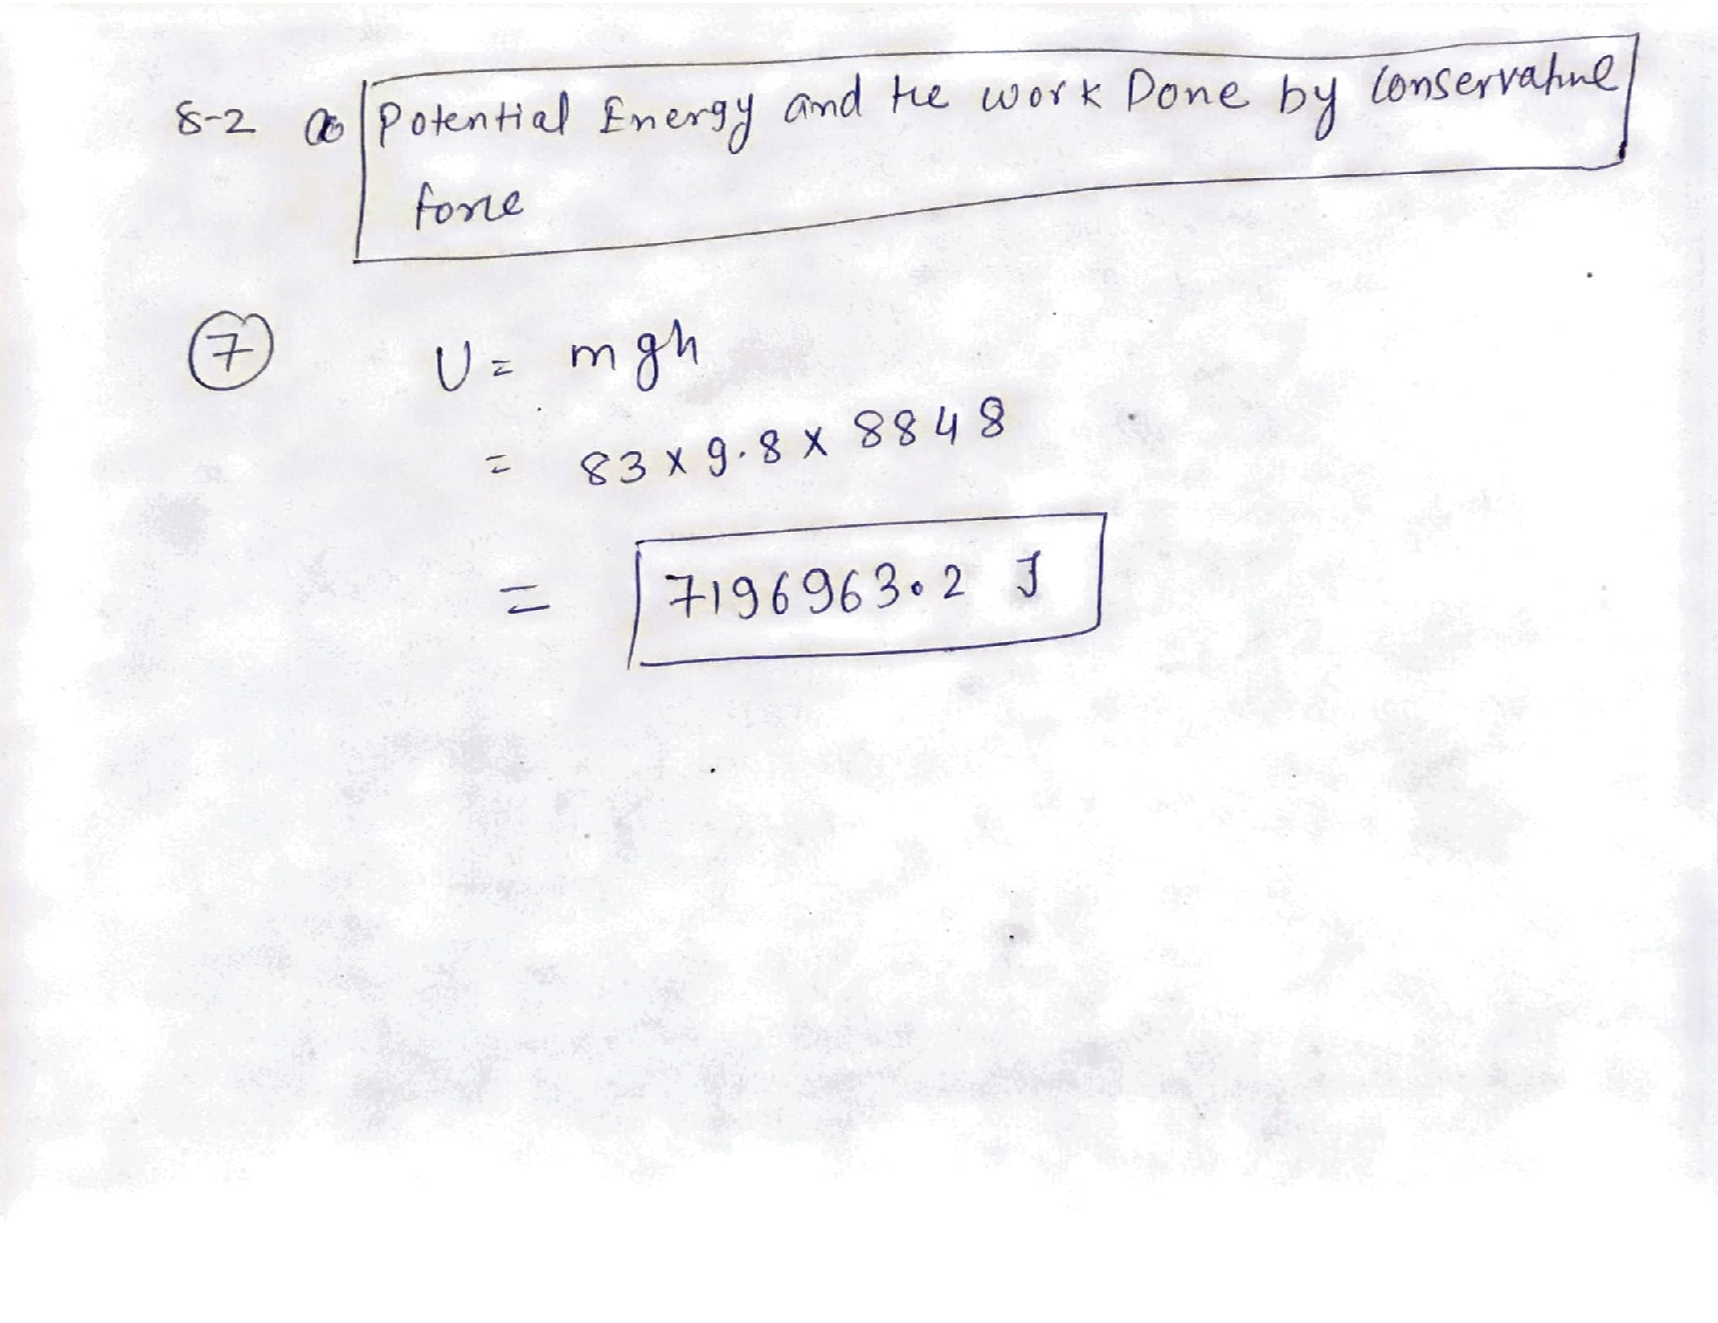 8-2 Potential Energy and the work Done by conservative
force
7 U = mgh
= 83 x 9.8 x 8848
= 7196963.2 J